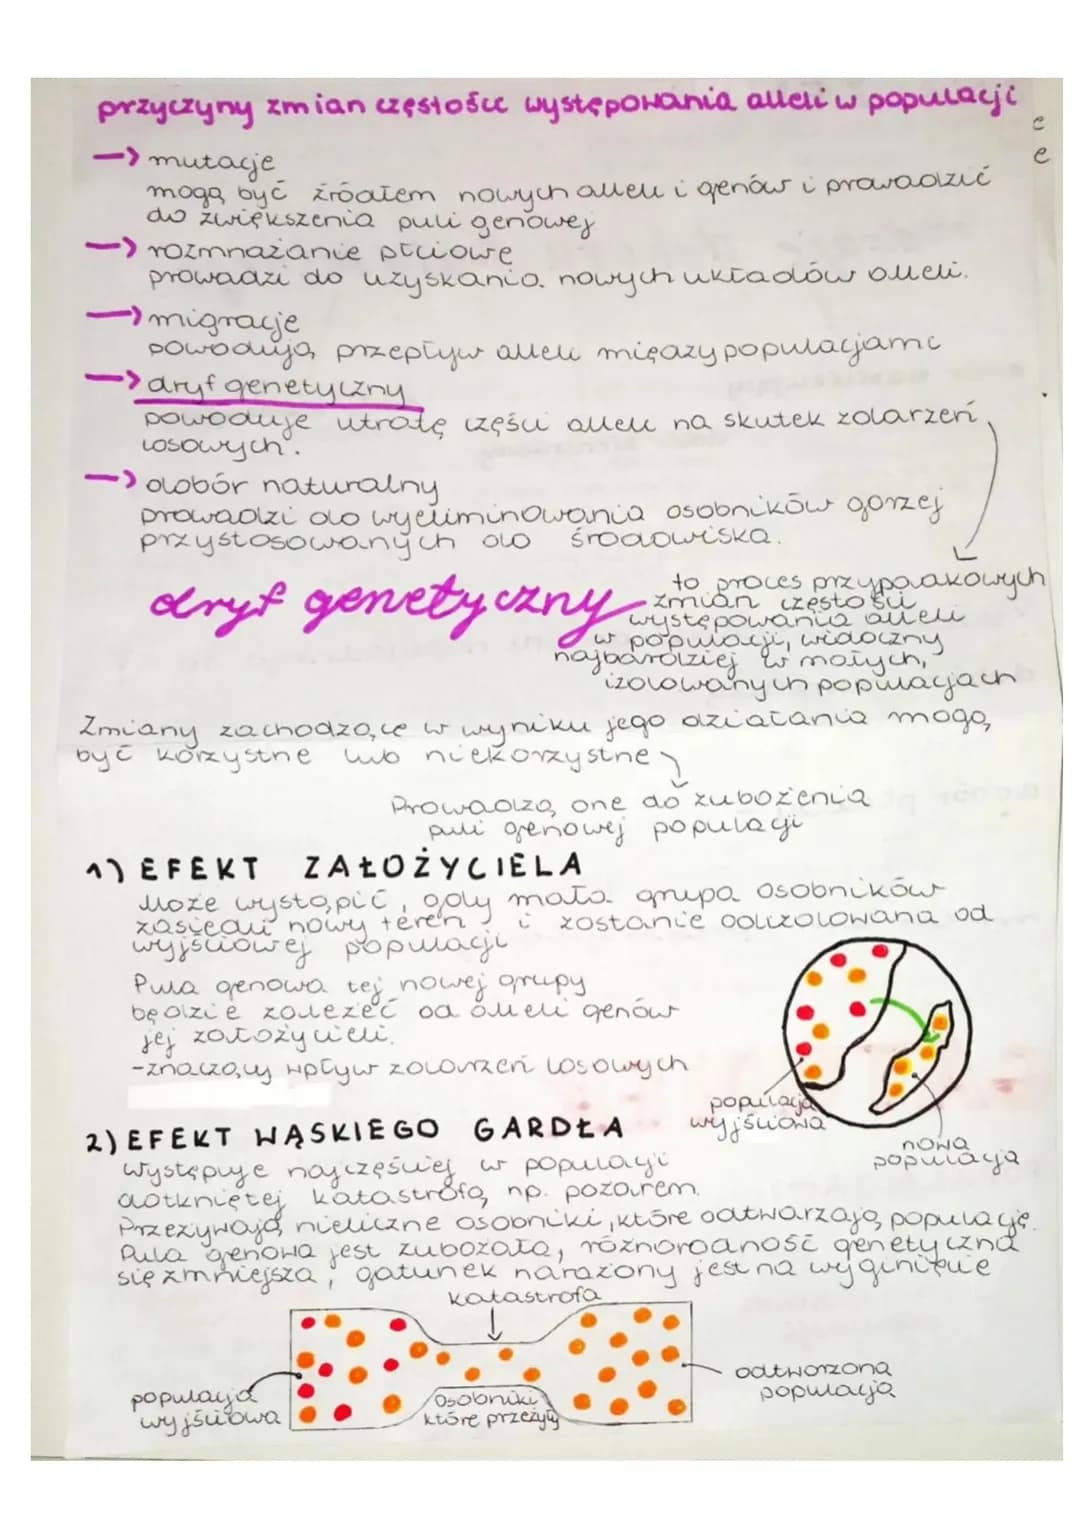 przyczyny zmian częstości występowania alleli w populacji
→ mutacje
mogą być źródłem nowych alleli i genów i prowadzić
do zwiększenia puli genowej
→ rozmnażanie płciowe
prowadzi do uzyskania nowych układów alleli.
→ migracje
powodują przepływ alleli między populacjami
→ dryf genetyczny
powoduje utratę części alleli na skutek zdarzeń
losowych.
→ dobór naturalny
prowadzi do wyeliminowania osobników gorzej
przystosowanych do środowiska.
dryf genetyczny
to proces przypadkowych
zmian częstości
występowania alleli
w populacji, widoczny
najbardziej w małych,
izolowanych populacjach
Zmiany zachodzące w wyniku jego działania mogą
być korzystne lub niekorzystne
Prowadzą one do zubożenia
puli genowej populacji
1) EFEKT ZAŁOŻYCIELA
Może wystąpić, gdy mała grupa osobników
zasiedli nowy teren i zostanie odizolowana od
wyjściowej populacji
Pula genowa tej nowej grupy
będzie zależeć od alleli genów
jej założycieli.
-znaczący wpływ zdarzeń losowych
populacja
wyjściowa
nowa
populacja
2) EFEKT WĄSKIEGO GARDŁA
Występuje najczęściej w populacji
dotkniętej katastrofą, np. pożarem.
Przeżywają nieliczne osobniki, które odtwarzają populację.
Pula genowa jest zubożała, różnorodność genetyczna
się zmniejsza, gatunek narażony jest na wyginięcie
katastrofa
populacja
wyjściowa
Osobniki
które przeżyły
odtworzona
populacja